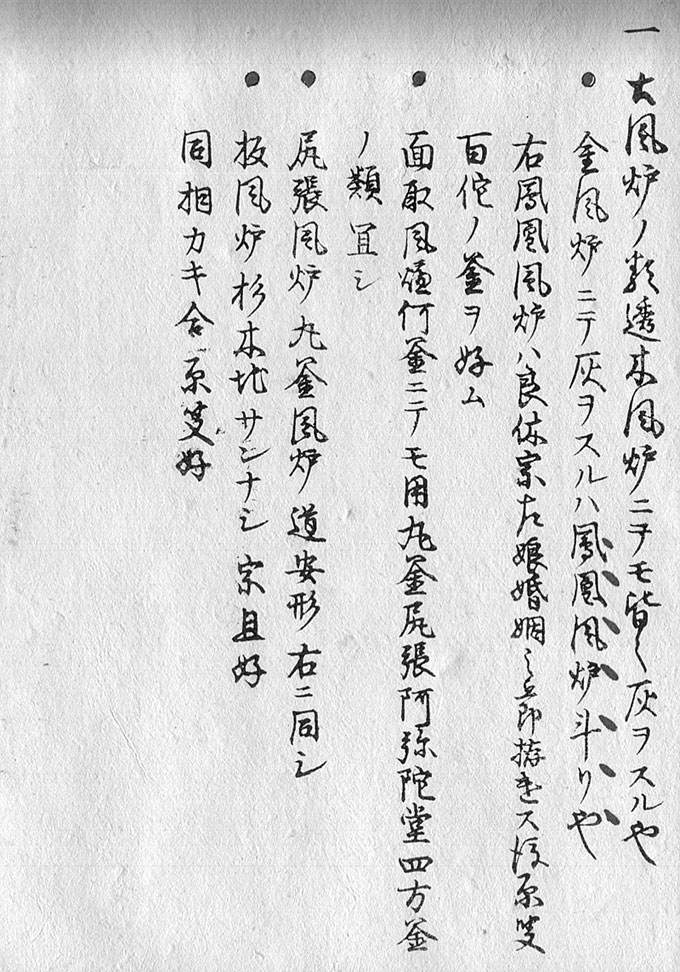 一 大風炉ノ類透木風炉ニテモ皆〻灰ヲスル也
金風炉ニテ灰ヲスルハ鳳凰風炉斗リ也
右鳳凰風炉ハ良休宗左娘婚姻之 原叟
百佗ノ釜ヲ好ム
面取風爐何釜ニテモ用丸釜尻張阿弥陀堂四方釜
ノ類宜シ
尻張風炉丸釜風炉道安形右ニ同シ
板風炉杉木地サンナシ 宗旦好
同相カキ合原叟好